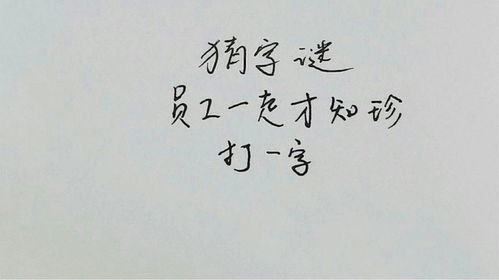 猜字谜
员工一起才知珍
打一字